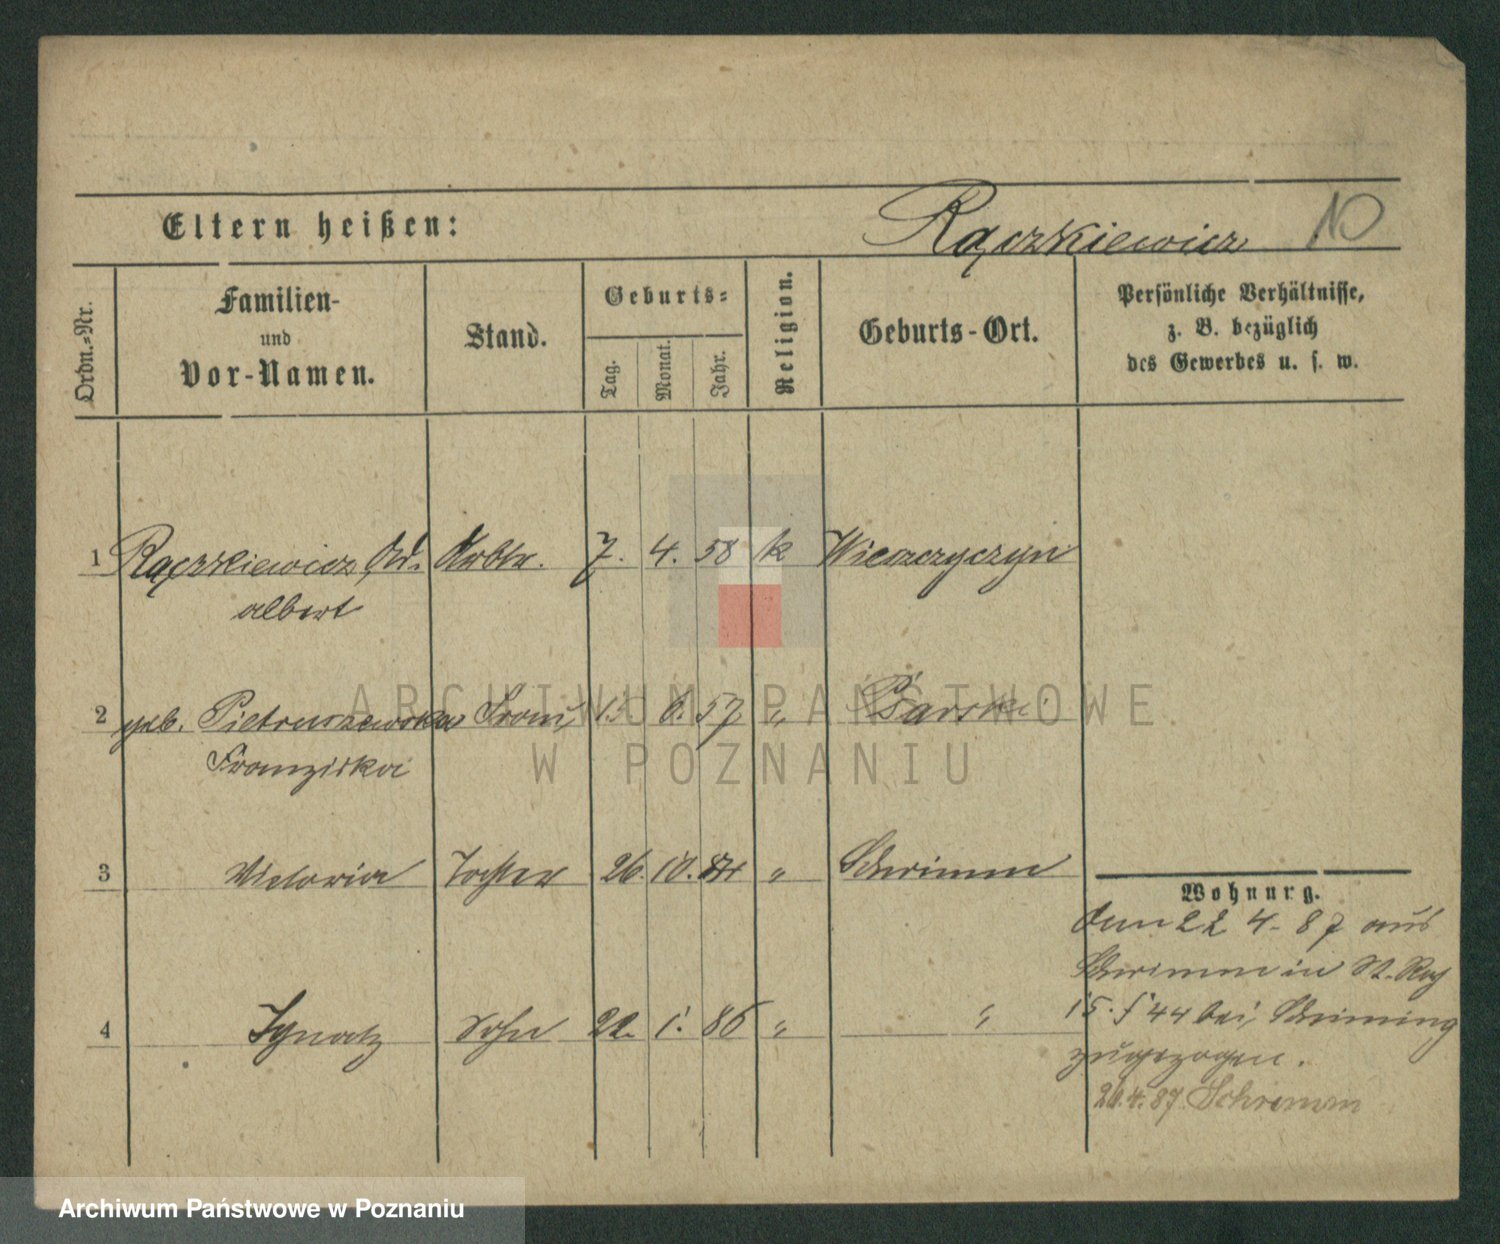 Eltern heißen:
Rączkiewicz 10
Ordn.-Nr.
Familien-
und
Vor-Namen.
Stand.
Geburts-
Tag.
Monat.
Jahr.
Religion.
Geburts-Ort.
Persönliche Verhältnisse,
z. B. bezüglich
des Gewerbes u. s. w.
1 Rączkiewicz Ad. Arbtr. 7. 4. 58 k Wieszczyczyn
albert
2 geb. Pietruszewska Frau 6. 57 "
Franziska
3 Victoria Tochter 26. 10. 84 " Schrimm
4 Ignatz Sohn 22. 1. 86 " "
Wohnung.
den 22 4. 87 aus
Schrimm in St. Roch
15. f 44 bei
zugezogen.
26.4.87 Schrimm
ARCHIWUM PAŃSTWOWE
W POZNANIU
Archiwum Państwowe w Poznaniu